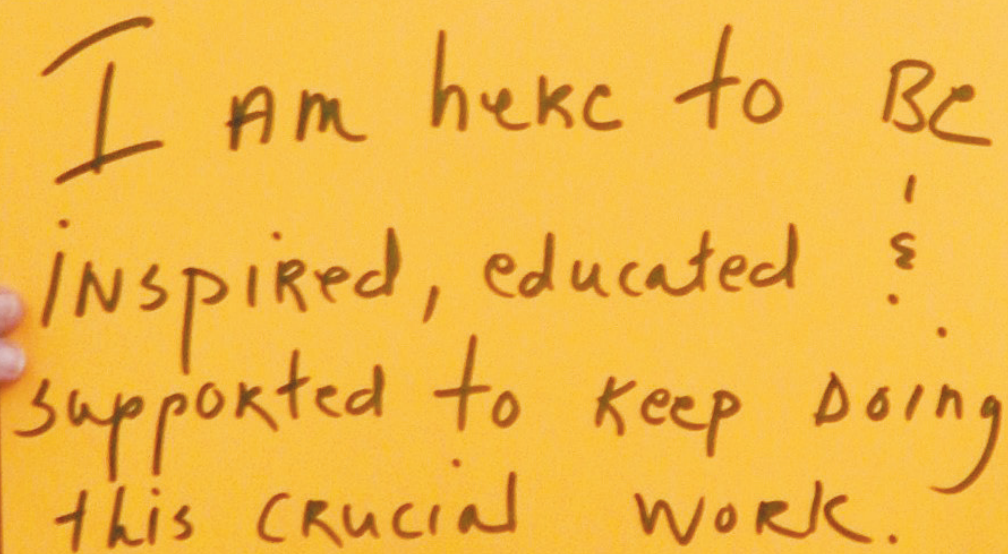 I AM here to Be
inspired, educated &
supported to keep Doing
this crucial work.